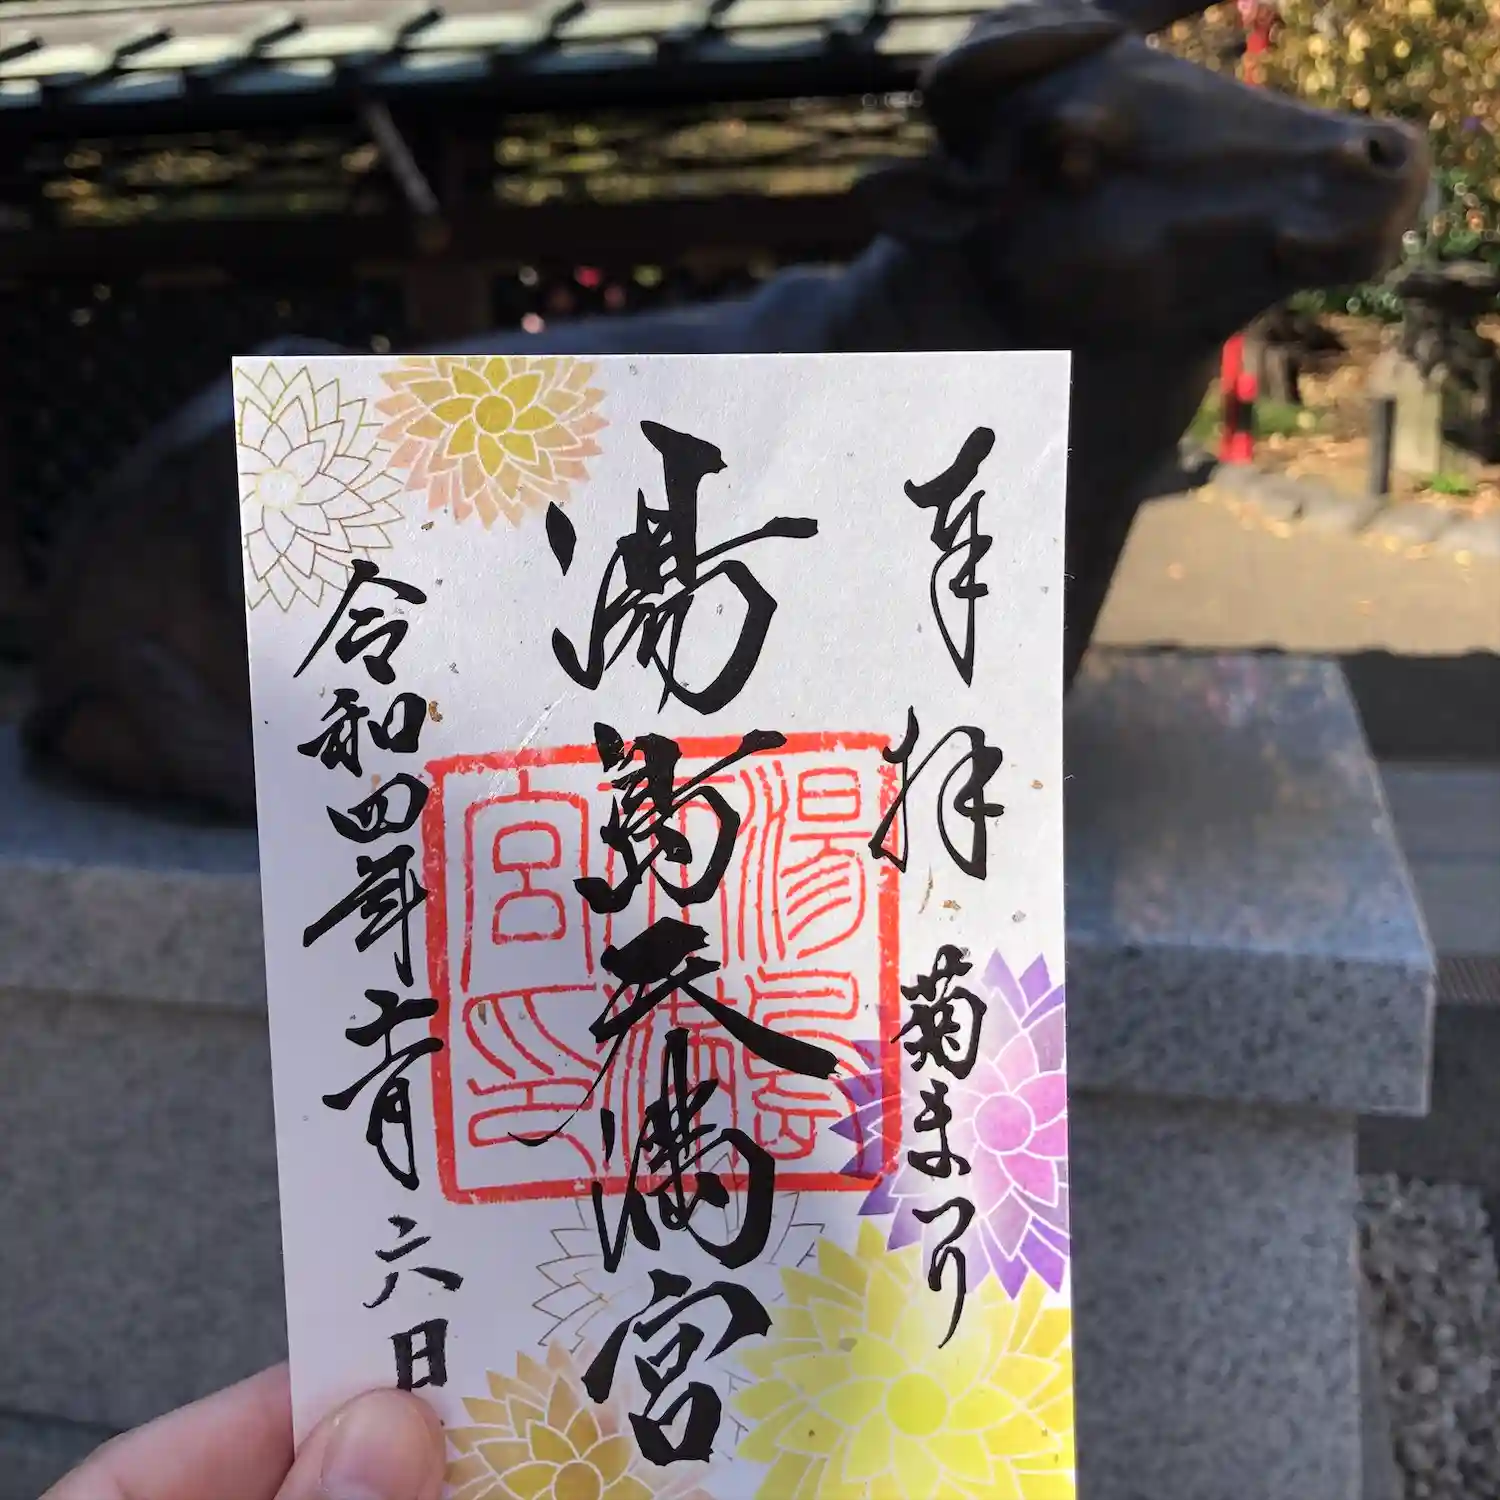 奉拝 菊まつり
湯島天満宮
令和四年十一月六日
湯島
天満
宮印